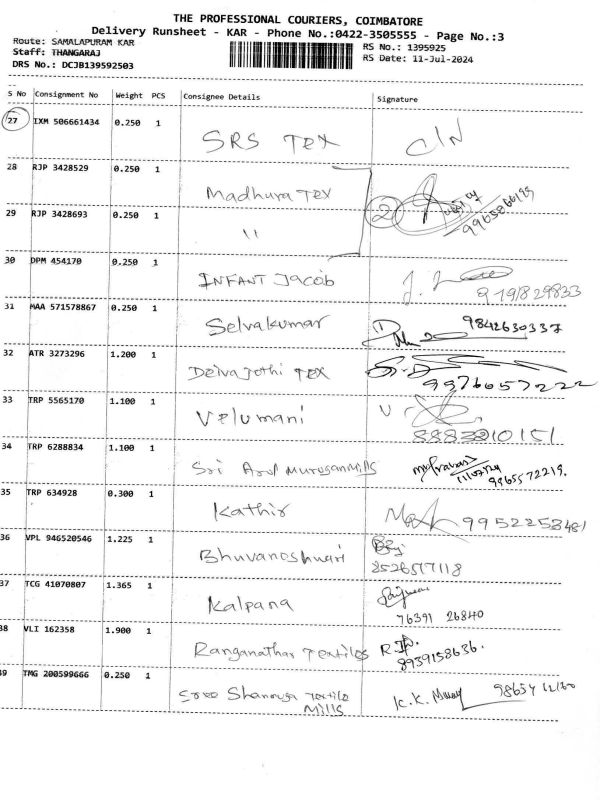 THE PROFESSIONAL COURIERS, COIMBATORE
Delivery Runsheet - KAR - Phone No.:0422-3505555 - Page No.:3
Route: SAMALAPURAM KAR
RS No.: 1395925
Staff: THANGARAJ
RS Date: 11-Jul-2024
DRS No.: DCJB139592503
S No Consignment No Weight PCS Consignee Details Signature
27 IXM 506661434 0.250 1 SRS TEX C/N
28 RJP 3428529 0.250 1 Madhura TEX 2
29 RJP 3428693 0.250 1 "
30 DPM 454170 0.250 1 INFANT Jacob
31 MAA 571578867 0.250 1 Selvakumar 9842630337
32 ATR 3273296 1.200 1 Deivajothi TEX 9976657222
33 TRP 5565170 1.100 1 Velumani 8883010151
34 TRP 6288834 1.100 1 Sri Arul Murugan Mills 11/07/24 9965572219.
35 TRP 634928 0.300 1 Kathir
36 VPL 946520546 1.225 1 Bhuvaneshwari 8526517118
37 TCG 41070807 1.365 1 Kalpana 76391 26840
38 VLI 162358 1.900 1 Ranganathar Textiles 8939158636.
39 TMG 200599666 0.250 1 Sree Shanmuga Textile Mills K.K.